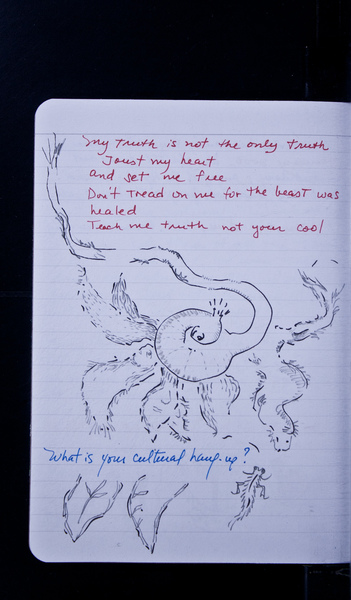 My truth is not the only truth
Joust my heart
and set me free
Don't Tread on me for the beast was
healed
Teach me truth not your cool
What is your cultural hang-up?